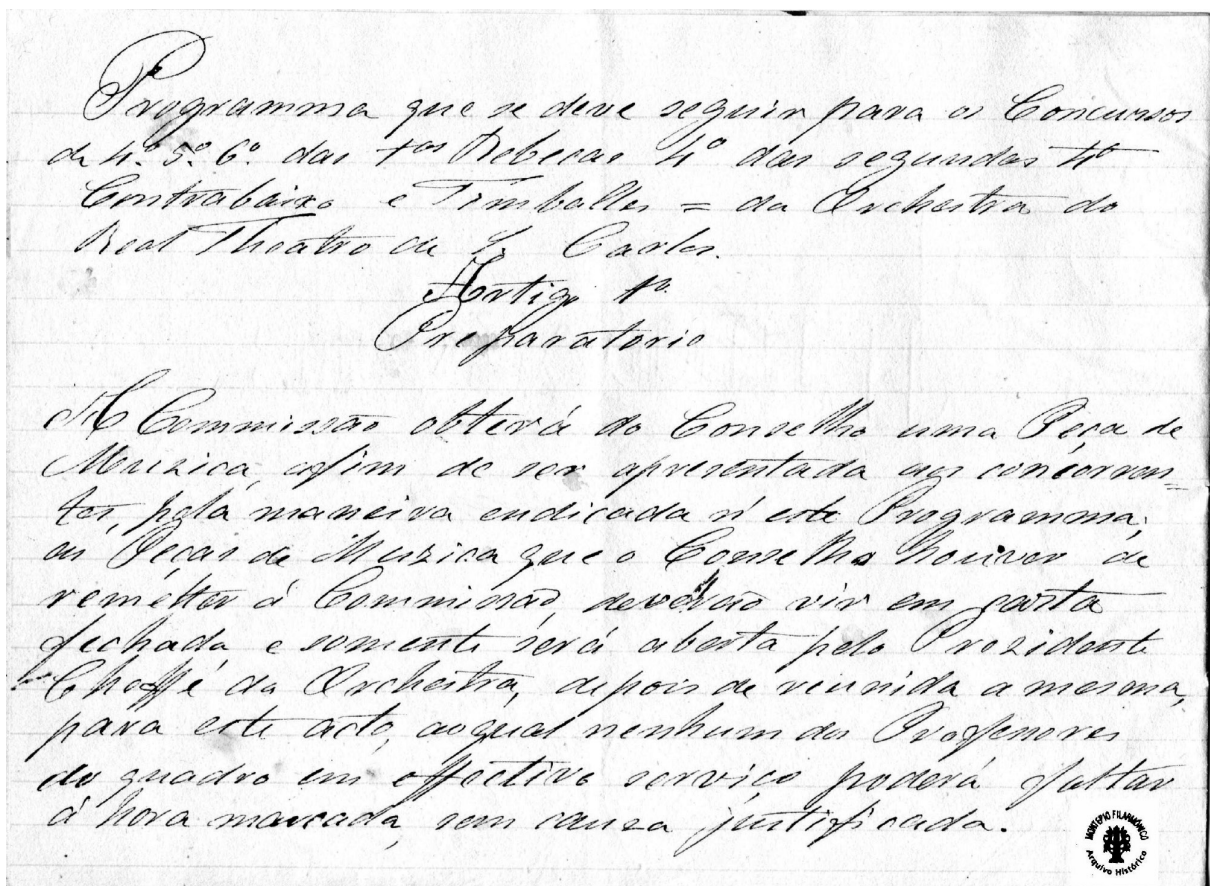 Programma que se deve seguir para os Concursos
de 4º 5º 6º das 1as Rebecas 4º das segundas 4º
Contrabaixo e Timballes = da Orchestra do
Real Theatro de S. Carlos.
Artigo 1º
Preparatorio
A Commissão obterá do Conselho uma Peça de
Muzica, afim de ser apresentada aos concorren=
tes, pela maneira endicada n'este Programma;
as Peças de Muzica que o Conselho houver de
remetter á Commissão, deverão vir em carta
fechada e somente será aberta pelo Prezidente
Cheffe da Orchestra, depois de reunida a mesma,
para este acto, ao qual nenhum dos Professores
do quadro em effectivo serviço poderá faltar
á hora marcada, sem cauza justificada.
MONTEPIO FILARMÓNICO
Arquivo Histórico